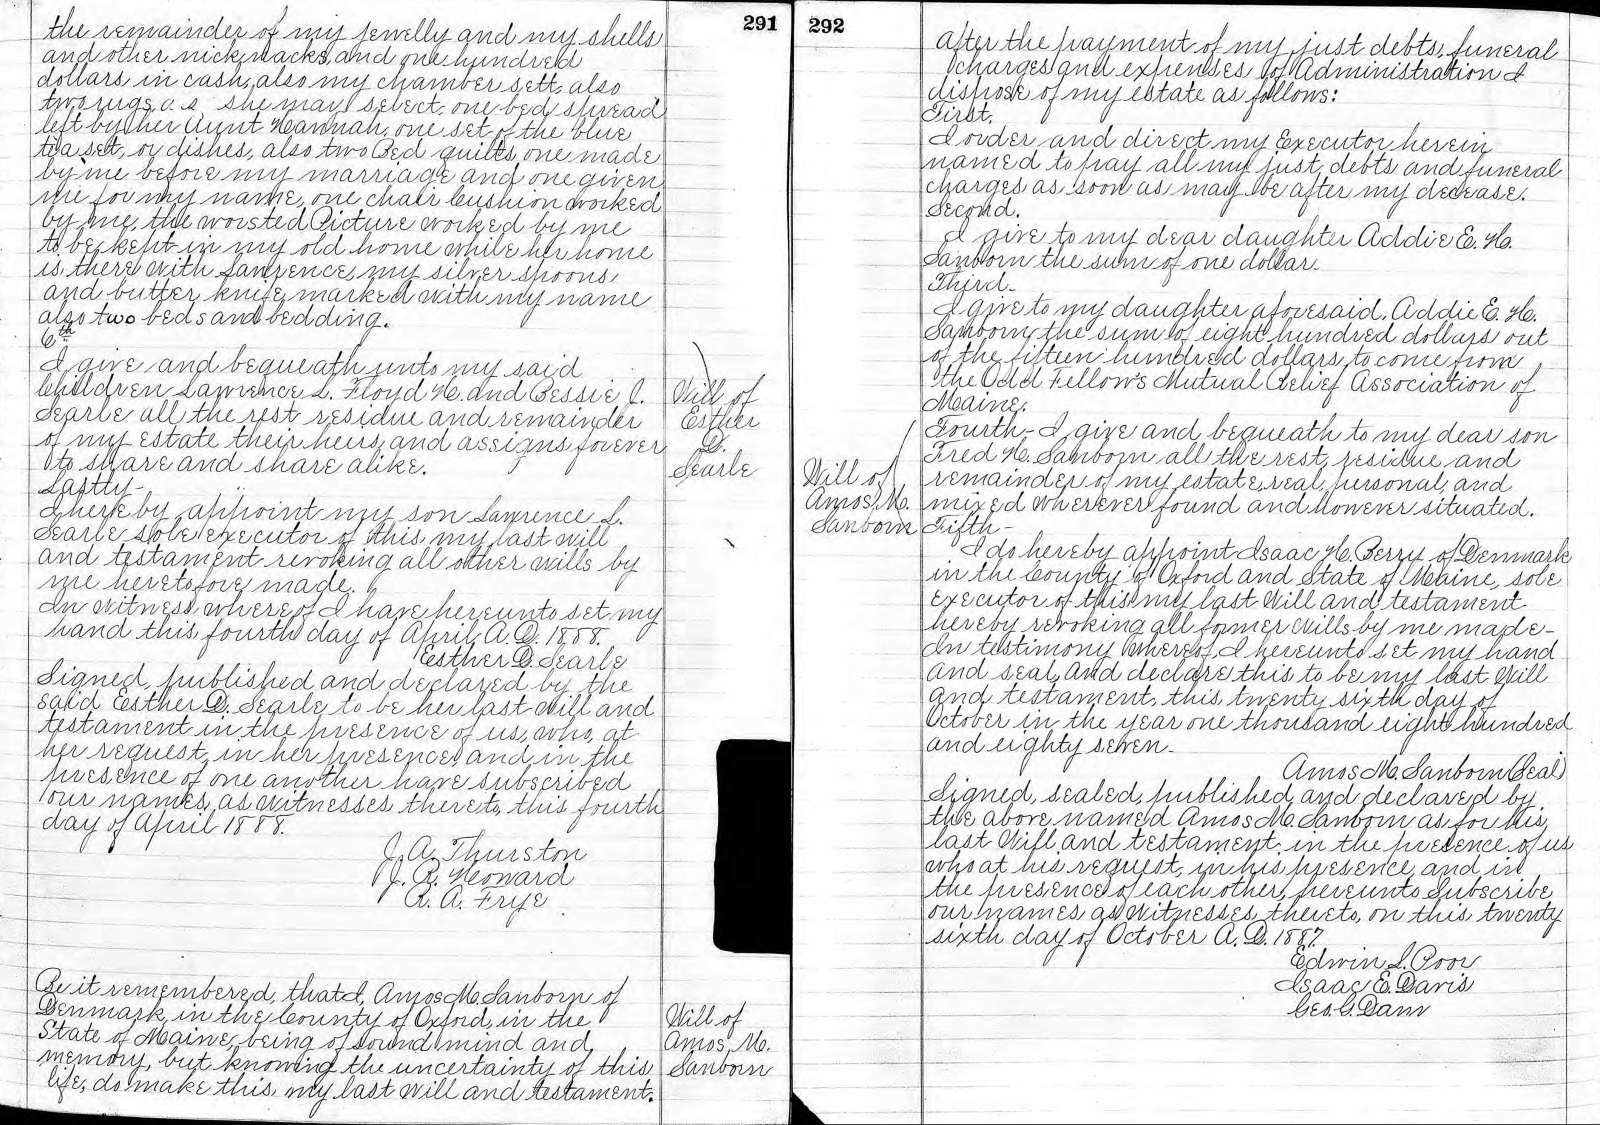 291
the remainder of my jewelly and my shells
and other nicknacks, and one hundred
dollars in cash, also my chamber sett, also
two rugs as she may select, one bed spread
left by her Aunt Hannah, one set of the blue
tea set, or dishes, also two Bed quilts, one made
by me before my marriage and one given
me for my name, one chair Cushion worked
by me, the worsted Picture worked by me
to be kept in my old home while her home
is there with Lawrence, my silver spoons,
and butter knife marked with my name
also two beds and bedding.
6th
I give and bequeath unto my said
Children Lawrence L. Floyd H. and Bessie J.
Searle all the rest residue and remainder
of my estate their heirs, and assigns forever
to share and share alike.
Lastly-
I hereby appoint my son Lawrence L.
Searle sole executor of this my last will
and testament revoking all other wills by
me heretofore made.
In Witness whereof I have hereunto set my
hand this, fourth day of April, A.D. 1888.
Esther D. Searle
Signed, published and declared by the
said Esther D. Searle to be her last Will and
testament in the presence of us, who, at
her request, in her presence, and in the
presence of one another have subscribed
our names, as Witnesses thereto, this fourth
day of April 1888.
J. A. Thurston
J. R. Howard
R. A. Frye
Will of
Esther
D.
Searle
Be it remembered, that I, Amos M. Sanborn of
Denmark, in the County of Oxford, in the
State of Maine, being of sound mind and
memory, but knowing the uncertainty of this
life, do make this, my last Will and testament.
Will of
Amos, M.
Sanborn
292
After the payment of my just debts, funeral
charges and expenses of Administration I
dispose of my estate as follows:
First.
I order and direct my Executor herein
named to pay all my just debts and funeral
charges as soon as may be after my decease.
Second.
I give to my dear daughter Addie E. H.
Sanborn the sum of one dollar.
Third-
I give to my daughter aforesaid, Addie E. H.
Sanborn, the sum of eight hundred dollars out
of the fifteen hundred dollars, to come from
the Odd Fellow's Mutual Relief Association of
Maine.
Fourth- I give and bequeath to my dear son
Fred H. Sanborn all the rest, residue, and
remainder of my estate, real, personal, and
mixed wherever found and however situated.
Fifth-
I do hereby appoint Isaac H. Berry of Denmark
in the County of Oxford and State of Maine, sole
executor of this my last Will and testament
hereby revoking all former Wills by me made-
In testimony Whereof, I hereunto set my hand
and seal, and declare this to be my last Will
and testament, this twenty sixth day of
October in the year one thousand eight hundred
and eighty seven-
Amos M. Sanborn (Seal)
Signed, sealed, published, and declared by
the above named Amos M. Sanborn as for his
last Will and testament, in the presence of us
who at his request, in his presence, and in
the presence of each other, hereunto Subscribe
our names as Witnesses thereto, on this twenty
sixth day of October A. D. 1887.
Edwin L. Poor
Isaac E. Davis
Geo. C. Dam
Will of
Amos, M.
Sanborn